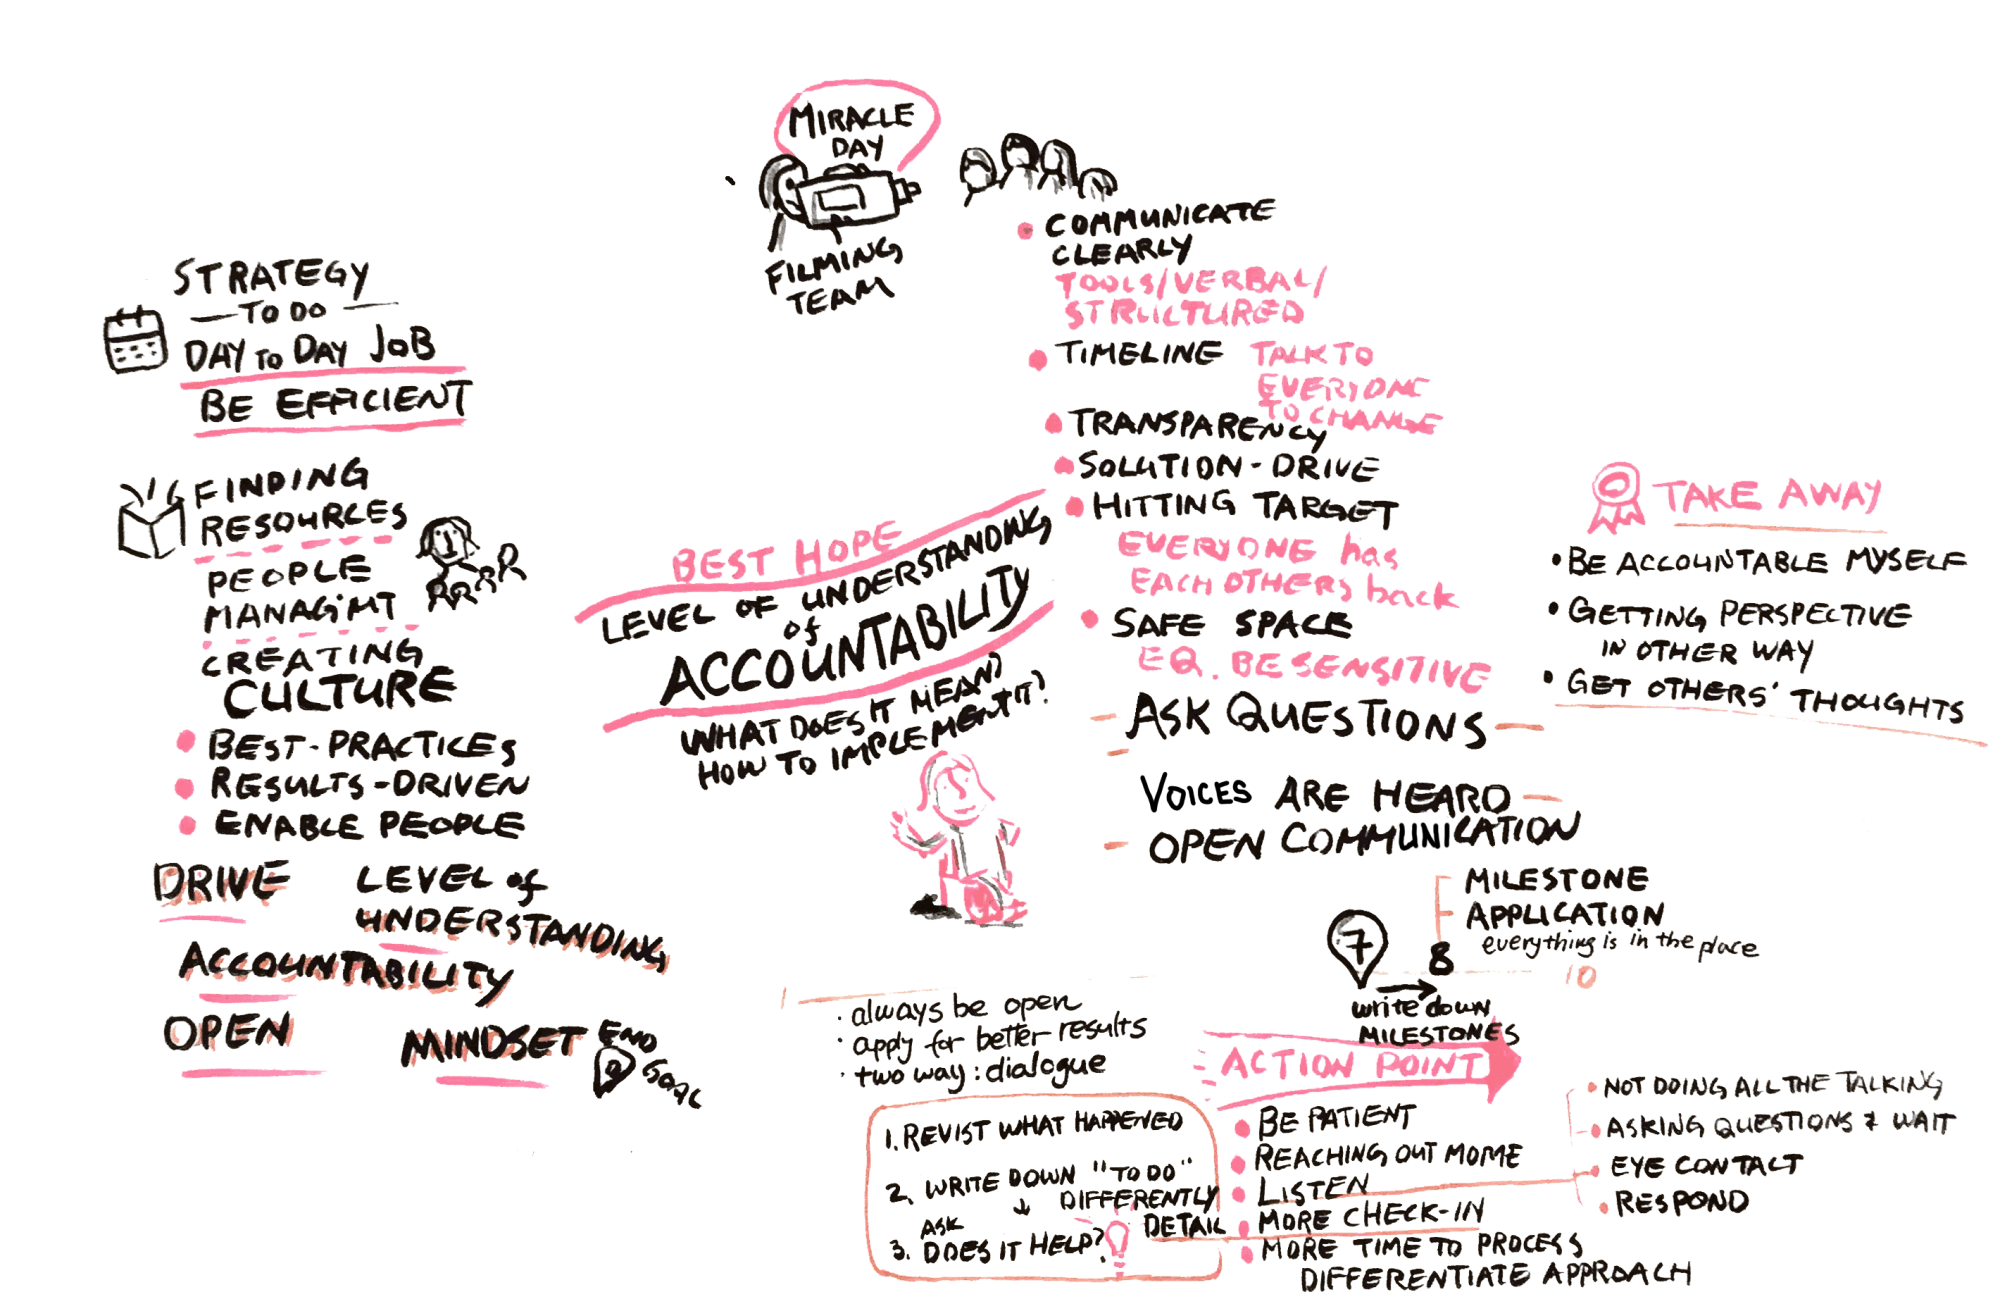 MIRACLE
DAY
FILMING
TEAM
STRATEGY
TO DO
DAY TO DAY JOB
BE EFFICIENT
FINDING
RESOURCES
PEOPLE
MANAG'MT
CREATING
CULTURE
BEST-PRACTICES
RESULTS-DRIVEN
ENABLE PEOPLE
DRIVE
LEVEL of
UNDERSTANDING
ACCOUNTABILITY
OPEN
MINDSET
END
GOAL
BEST HOPE
LEVEL OF UNDERSTANDING
of
ACCOUNTABILITY
WHAT DOES IT MEAN?
HOW TO IMPLEMENT IT?
COMMUNICATE
CLEARLY
TOOLS/VERBAL/
STRUCTURED
TIMELINE TALK TO
EVERYONE
TO CHANGE
TRANSPARENCY
SOLUTION-DRIVE
HITTING TARGET
EVERYONE has
EACH OTHERS back
SAFE SPACE
EQ. BE SENSITIVE
ASK QUESTIONS
VOICES ARE HEARD
OPEN COMMUNICATION
TAKE AWAY
• BE ACCOUNTABLE MYSELF
• GETTING PERSPECTIVE
IN OTHER WAY
• GET OTHERS' THOUGHTS
MILESTONE
APPLICATION
everything is in the place
7
8
10
write down
MILESTONES
1
· always be open
· apply for better results
· two way: dialogue
1. REVIST WHAT HAPPENED
2. WRITE DOWN "TO DO"
DIFFERENTLY
ASK
3. DOES IT HELP?
DETAIL
ACTION POINT
BE PATIENT
REACHING OUT MORE
LISTEN
MORE CHECK-IN
MORE TIME TO PROCESS
DIFFERENTIATE APPROACH
NOT DOING ALL THE TALKING
ASKING QUESTIONS & WAIT
EYE CONTACT
RESPOND